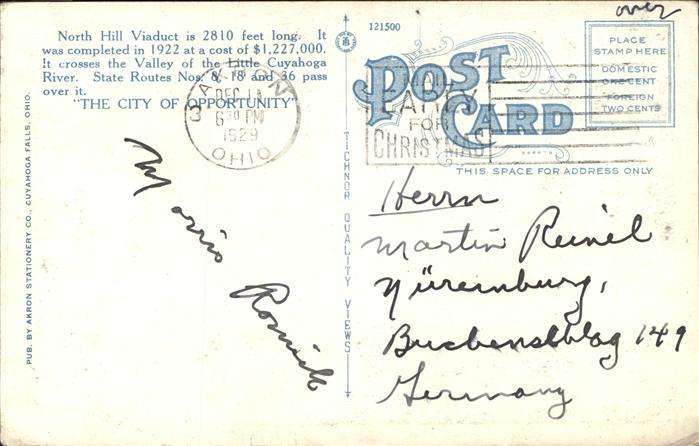 over
North Hill Viaduct is 2810 feet long. It
was completed in 1922 at a cost of $1,227,000.
It crosses the Valley of the Little Cuyahoga
River. State Routes Nos. 8, 18 and 36 pass
over it.
"THE CITY OF OPPORTUNITY"
AKRON
DEC 11
6 30 PM
1929
OHIO
Morris
121500
POST
CARD
FOR
CHRISTMAS
PLACE
STAMP HERE
DOMESTIC
ONE CENT
FOREIGN
TWO CENTS
THIS SPACE FOR ADDRESS ONLY
Herrn
Martin Reinel
Nüremburg,
149
Germany
TICHNOR QUALITY VIEWS
PUB. BY AKRON STATIONERY CO., CUYAHOGA FALLS, OHIO.